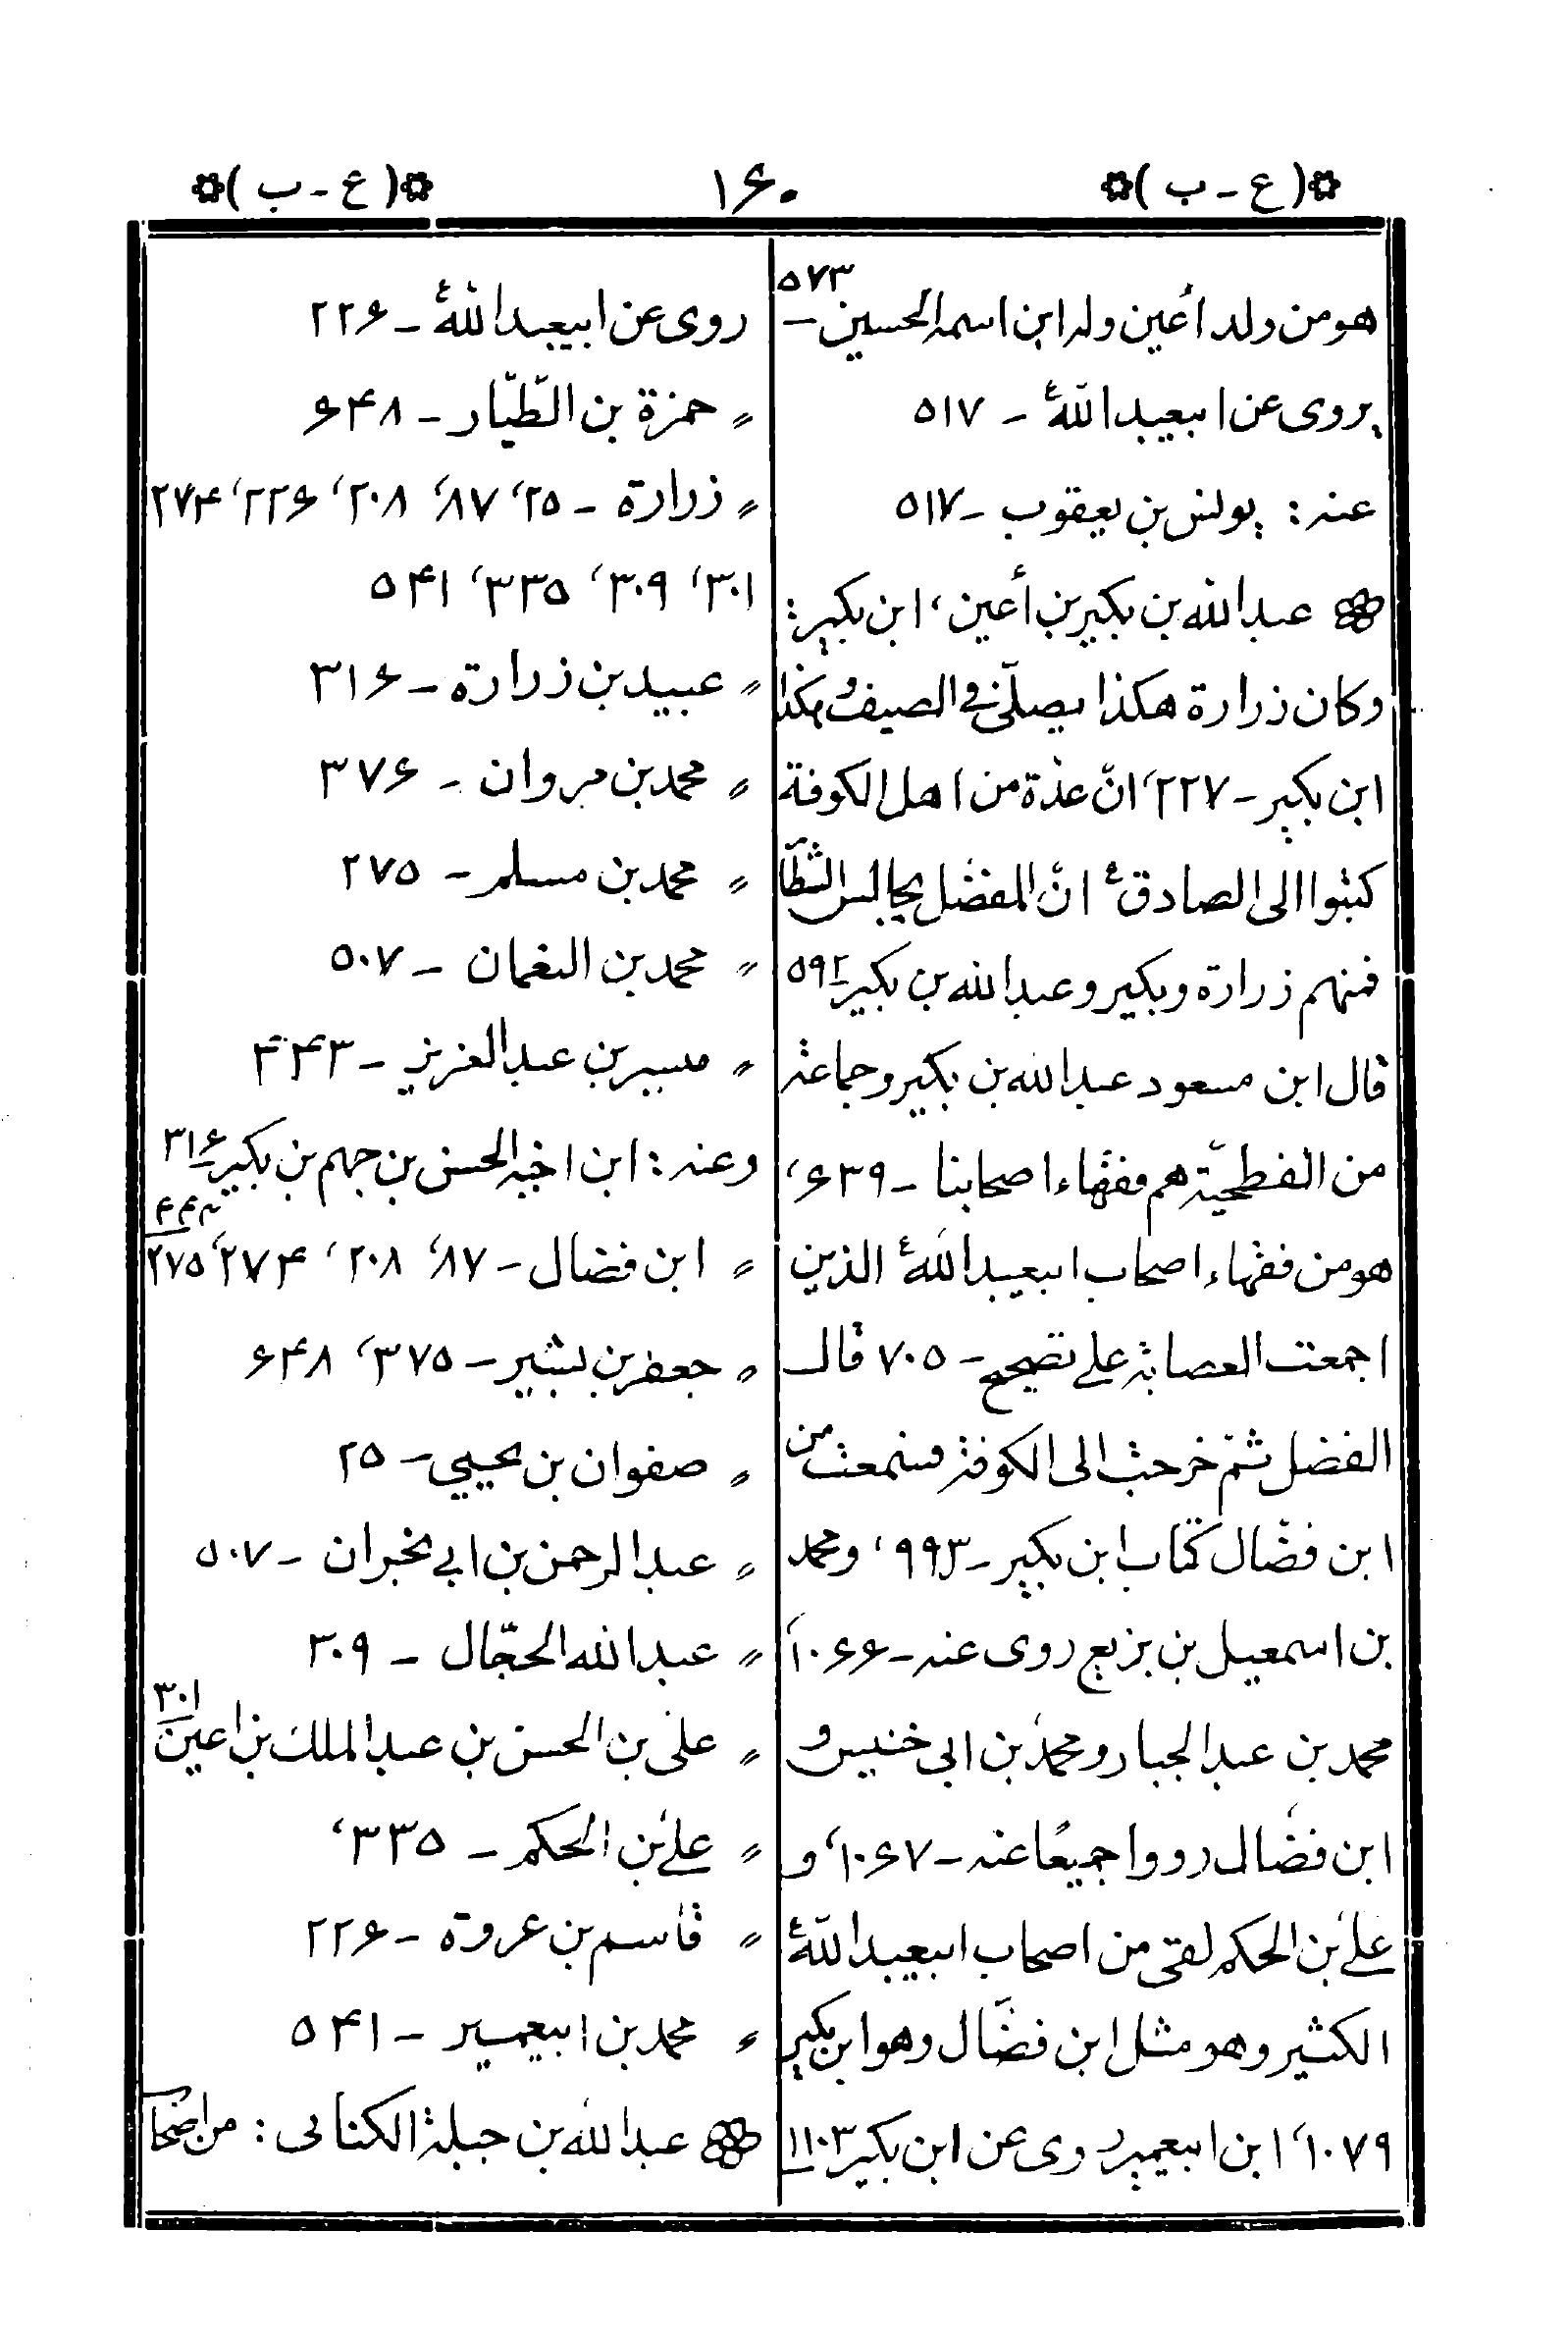 (ع - ب) ۱۶۰ (ع - ب)
هو من ولد أعين وله ابن اسمه الحسين - ۵۷۳
يروى عن ابيعبد اللهؑ - ۵۱۷
عنه: يونس بن يعقوب - ۵۱۷
عبد الله بن بكير بن أعين، ابن بكير:
وكان زرارة هكذا يصلّى فى الصيف و هكذا
ابن بكير - ۲۲۷، انّ عدّة من اهل الكوفة
كتبوا الى الصادقؑ انّ المفضّل يجالس الشطّا
فمنهم زرارة وبكير وعبد الله بن بكير - ۵۹۲
قال ابن مسعود عبد الله بن بكير وجماعة
من الفطحيّة هم فقهاء اصحابنا - ۶۳۹،
هو من فقهاء اصحاب ابيعبد اللهؑ الذين
اجمعت العصابة على تصحيح - ۷۰۵ قال
الفضل ثمّ خرجت الى الكوفة فسمعت من
ابن فضّال كتاب ابن بكير - ۹۹۳، ومحمد
بن اسمعيل بن بزيع روى عنه - ۱۰۶۶،
محمد بن عبد الجبار ومحمد بن ابى خنيس و
ابن فضّال رووا جميعًا عنه - ۱۰۶۷، و
علىّ بن الحكم لقى من اصحاب ابيعبد اللهؑ
الكثير وهو مثل ابن فضّال وهو ابن بكير
۱۰۷۹، ابن ابيعمير روى عن ابن بكير ۱۱۰۳
روى عن ابيعبد اللهؑ - ۲۲۶
〃 حمزة بن الطّيّار - ۶۴۸
〃 زرارة - ۲۵، ۸۷، ۲۰۸، ۲۲۶، ۲۷۴
۳۰۱، ۳۰۹، ۳۳۵، ۵۴۱
〃 عبيد بن زرارة - ۳۱۶
〃 محمد بن مروان - ۳۷۶
〃 محمد بن مسلم - ۲۷۵
〃 محمد بن النعمان - ۵۰۷
〃 ميسر بن عبد العزيز - ۴۴۳
وعنه: ابن اخيه الحسن بن جهم بن بكير - ۳۱۶
〃 ابن فضال - ۸۷، ۲۰۸، ۲۷۴، ۲۷۵
〃 جعفر بن بشير - ۳۷۵، ۶۴۸
〃 صفوان بن يحيي - ۲۵
〃 عبد الرحمن بن ابي نجران - ۵۰۷
〃 عبد الله الحجّال - ۳۰۹
〃 على بن الحسن بن عبد الملك بن اعين ۳۰۱
〃 علىّ بن الحكم - ۳۳۵،
〃 قاسم بن عروة - ۲۲۶
〃 محمد بن ابيعمير - ۵۴۱
عبد الله بن جبلة الكنانى: من اصحا